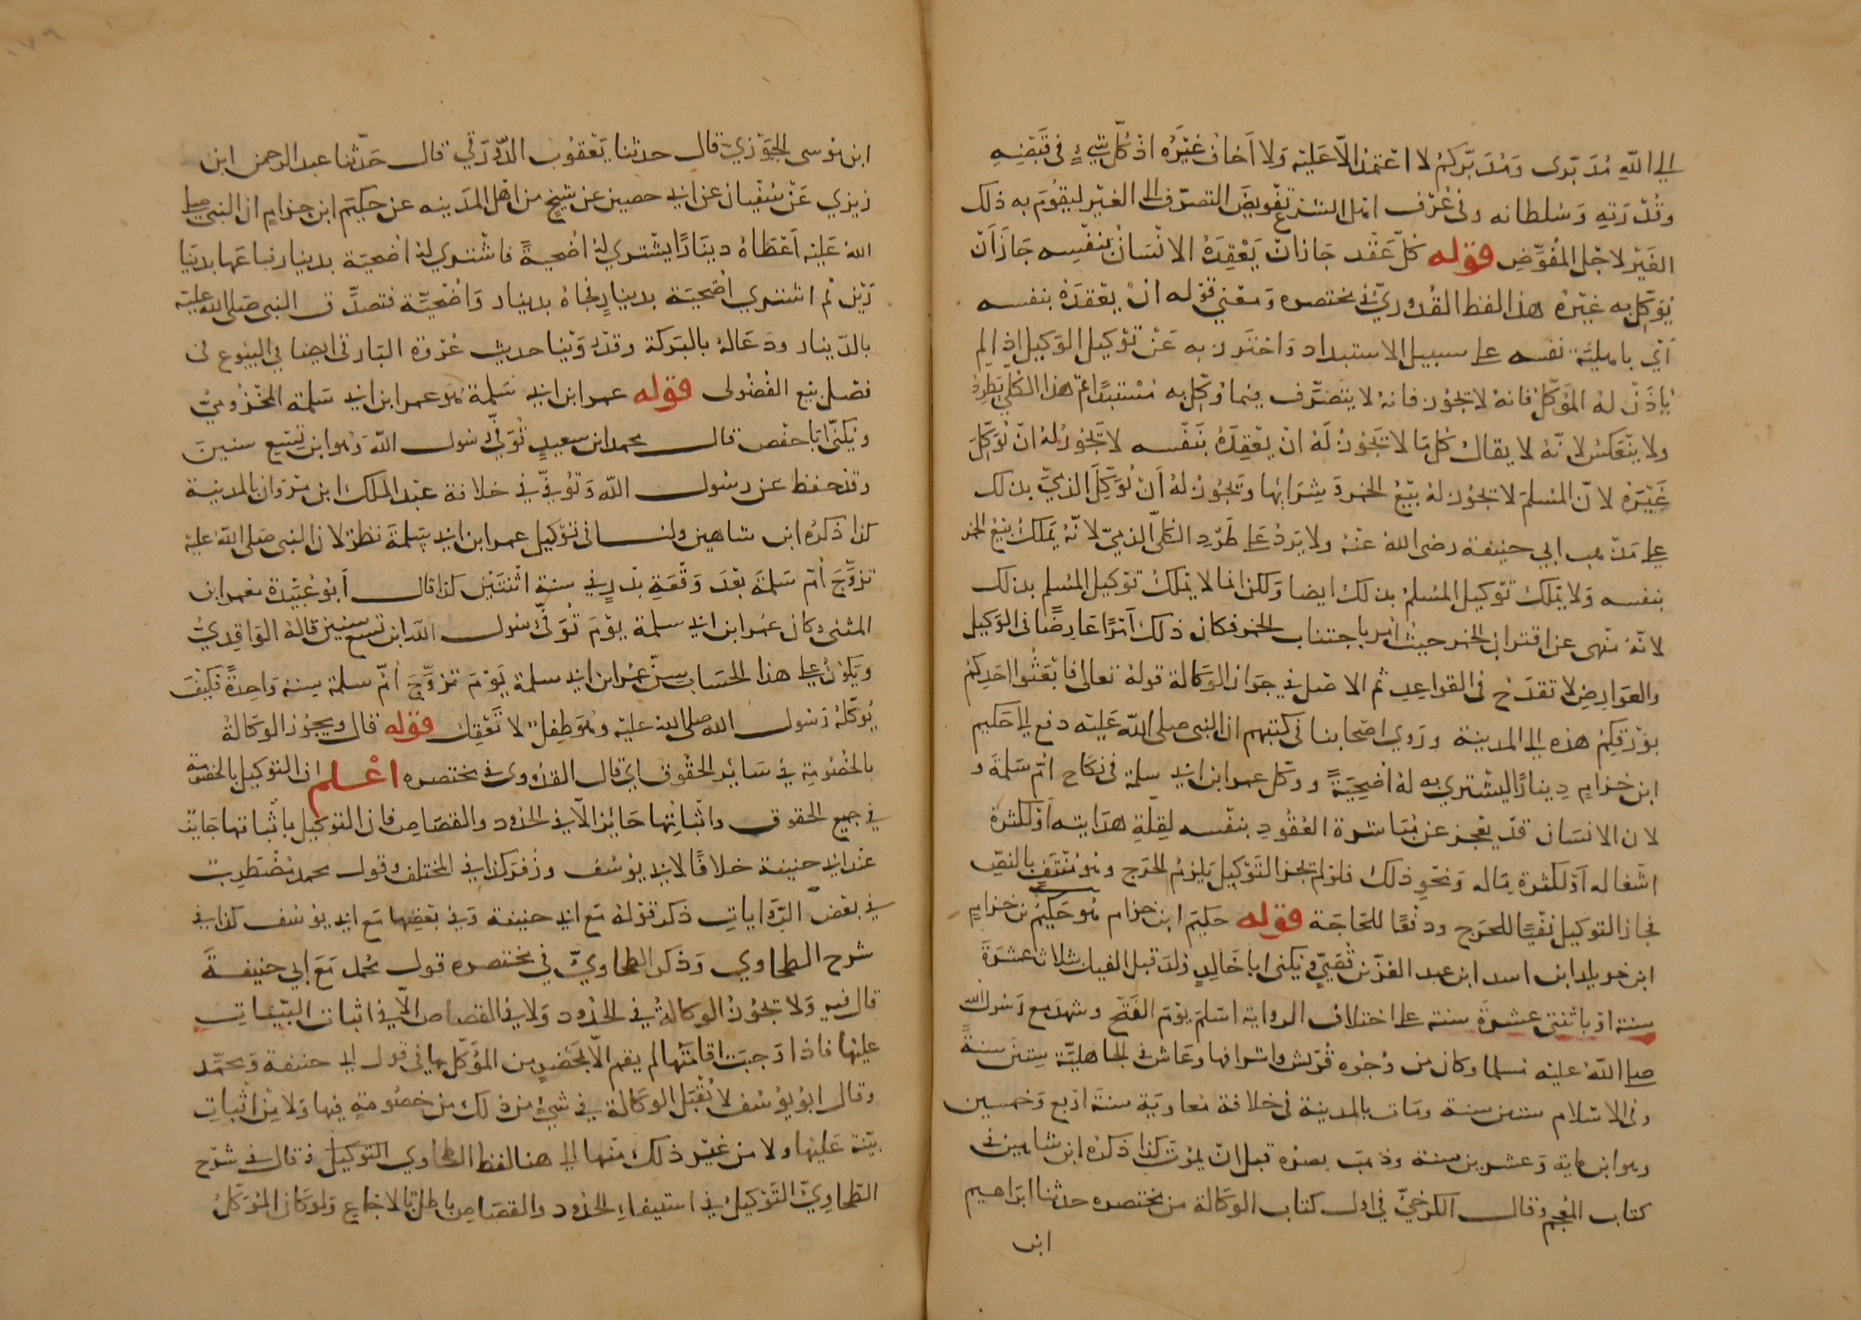 الى الله مُدَبّرى وَمُدَبّركم لا اعتمد الّا عَليْه وَلا اَخاف غيْرَه اذ كلّ شيءٍ فى قَبْضِه
وقُدْرَتِهِ وَسُلطانه وفى عُرْف اهل الشرع تفْويضَ التصرّف الى الغيْر ليقُومَ به ذلك
الغيْر لاجْل المُفوِّضِ قوله كلّ عَقْد جَازان يَعْقِدَهُ الانسَان بنفْسِه جَازَ اَنْ
يُوَكِّل به غيْرهُ هذا لفظ القُدُوريّ فى مختصره وَمعْنى قوله انْ يعْقدَهُ بنفسه
اَيْ باهليّة نفسه على سبيل الاستبداد وَاحْترز به عَنْ تَوْكيل الوَكيل اذا لم
يأذَنْ لهُ المُوَكِّل فانهُ لا يجوْز فانهُ لا يتَصَرّف فيما وُكِّل به مُسْتبدًا ثم هذا الكلّى يطرد
ولا ينعَكسُ لانّهُ لا يقال كُل ما لا يَجُوْزُ لَهُ انْ يَعْقِدَهُ بنَفْسه لا يَجُوْزُ لهُ انْ يُوَكِّلَ
غَيْرَهُ لانّ المسلمَ لا يجُوْز لهُ بيْعُ الخمر وَشِرَاؤها وَيَجُوْزُ لهُ اَنْ يُوَكّلَ الذِميَّ بذلك
على مَذْهب ابي حنيفة رضى اللهُ عَنْهُ ولا يَرِدُ عَلى طَرْدِ الكلّى الذميّ لانّهُ يَملكُ بيْعَ الخمر
بنفسه وَلا يَمْلكُ تَوْكيل المُسْلمُ بذلك ايضا وَلكن انما لا يملكُ توْكيل المُسْلم بذلك
لانّهُ مَنْهى عن اقتراب الخمر حيْثُ اُمِر باجتناب الخمر فكان ذلك اَمْرًا عَارِضًا فى الوَكيل
والعَوَارِض لا تقدَح فى القواعِدِ ثم الاصْل في جوَاز الوَكالة قولهُ تعالى فابْعَثُوا احَدكمْ
بوَرقِكُمْ هذه الى المدينة وروَى اصْحابنا فى كتبهم ان النبى صلى اللّه عَليْه دفع الى حَكيم
ابن حزامٍ دينارًا ليشتري به لهُ اُضْحِيَةً ووكّل عمر ابن ابى سلمة فى نكاح امّ سَلمَةَ و
لان الانسَان قدْ يعْجز عن مُبَاشرة العُقُودِ بنفْسه لِقِلّةِ هدَايته اَوْ لكثرة
اشْغاله اَوْ لكثرة مَاله وَنحوِ ذلك فلو لم يجز التَوْكيل يَلزمُ الحرَج وهُو مُنْتَفٍ بالنصّ
فجاز التوكيل نفْيًا للحرَج ودفْعًا للحَاجَة قوله حَكيم ابن حزام هُو حَكيْمُ بن حزامٍ
ابن خويلد ابن اسد ابن عبد العزّى بْن قُصَيٍّ يُكنى ابا خَالِدٍ وُلدَ قبل الفيل بثلاث عشرَةَ
سنة اوْ باثنتى عشرَة سنة على اختلاف الرواية اسْلمَ يوْمَ الفَتْح وشهدَ مع رَسُول الله
صلى اللّهُ عليْه مُسلما وكان من وُجُوْه قُرَيْش واشرافها وعَاش فى الجاهليّة سِتينَ سنةً
وفى الاسْلام ستين سنة ومَات بالمدينة فى خلافة مُعَاويَةَ سنَةَ اربع وَخمسين
وهو ابن مَايَة وَعشرين سنة وذهبَ بصرُه قبل انْ يمُوْتَ كذا ذكرَهُ ابن شاهين فى
كتاب المُعْجم وَقال الكرْخيّ في اول كتاب الوَكالة من مختصره حدثنا ابرَاهيم
ابن
ابن مُوسى الجَوْزيّ قال حدثنا يَعْقوُب الدَّوْرَقي قال حَدّثنا عبد الرحمن ابن
زيزي عَنْ سُفْيان عن ابى حصين عن شيْخٍ من اهْل المدَينه عن حَكيم ابن حزامٍ ان النبى صلى
اللهُ عَليْه اَعْطَاهُ دينَارًا يشْترِي لهُ اُضْحيةً فاشْتري لهُ اضحيّة بدينار فباعَها بدينا
رَيْن ثم اشترى اُضْحيَة بدينارٍ فجاهُ بدينار وَاُضْحِيّة فتصدَّق النبى صلى الله عليْه
بالدّينار ودَعَا لهُ بالبَركة وقدْ رَوْينا حديث عُرْوة البَارقى ايضا فى البيُوع فى
فصْل بيْع الفُضُولى قوله عمر ابن ابى سَلمة هُو عمر ابن ابى سَلمة المخْزُوميّ
وَيُكنّى اَبا حفْص قال محمد ابن سعيدٍ تُوَفّى رسُول اللّه وَهُو ابن تِسْع سنينَ
وقد حفظ عن رسُول اللّه وَتُوُفّي في خلافة عبْد الملكِ ابن مَرْوَان بالمدينة
كذا ذكرَهُ ابن شاهين ولنا فى توْكيل عمر ابن ابى سَلمَةَ نظرٌ لان النبى صَلى اللّهُ عليْه
تزوَّجَ اُمّ سَلمَةَ بَعْدَ وَقْعَةِ بدْرٍ في سنة اثْنتَيْن كذا قال اَبُو عُبَيْدة معْمر ابن
المثنى وكان عُمر ابن ابى سلمة يوْمَ تُوُفّى رَسُول اللّه ابْن تسع سنين قالهُ الوَاقِديُّ
وَيَكُونُ على هذا الحِسَاب سِنّ عُمر ابن ابى سلمة يَوْمَ تزوَّجَ اُمّ سلمة سِنهً وَاحِدَةً فكيْفَ
يُوَكّلهُ رَسُول الله صلى الله عليْه وَهُوَ طِفلٌ لا يَعْقِلُ قوله قال ويجُوْزُ الوَكالةُ
بالخصُومَةِ في سَائر الحقُوق اي قال القدُورى فى مختصره اعْلم ان التوكيل بالخصُومة
في جميع الحقوق واثْباتِها جَائِز الّا في الحدُود والقصَاص فان التوكيل باثْباتها جَايزٌ
عنْد ابى حنيفة خلافًا لابى يوْسُف وزُفر كذا في المختلف وقول محمد مُضْطَربٌ
في بعْض الرّوَايات ذكر قوْلهُ مَع ابى حنيفة وَفى بعْضِها مَع ابى يوْسُف كذا فى
شرح الطحاوي وَذكر الطحاويّ في مختصره قول محمد مَع ابي حنيفَةَ
قال فيه وَلا تجُوْزُ الوَكالةُ في الحدُود وَلا في القصاص الّا في اثبات البيّنات
عليْها فاذا وَجبَت اقامَتُها لم يقم الّا بمَحْضرٍ من المُؤكّل بها في قول ابى حنيفة وَمحمّد
وقال ابُو يُوْسُف لا تُقْبَل الوَكَالة في شيْءٍ من ذلك من خصُومَةٍ فيها وَلا من اثباتِ
بيّنة عَليْها ولا من غيْر ذلك منْها الى هنا لفظ الطحاوي التوكيل وَ قال في شرْح
الطحَاويّ التوْكيل فى استيفاءِ الحدُود والقصَاص باطل بالاجماع وَلو كان المُوَكّلُ